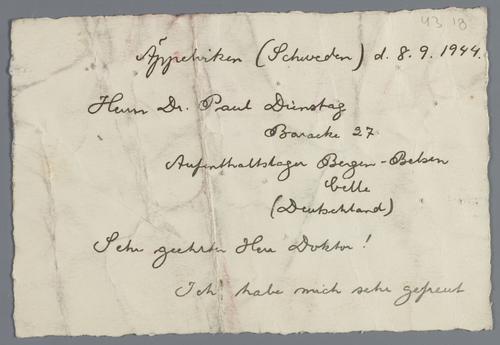 43 18
Äppelviken (Schweden) d. 8. 9. 1944.
Herrn Dr. Paul Dienstag
Baracke 27
Aufenthaltslager Bergen-Belsen
Celle
(Deutschland)
Sehr geehrter Herr Doktor!
Ich habe mich sehr gefreut